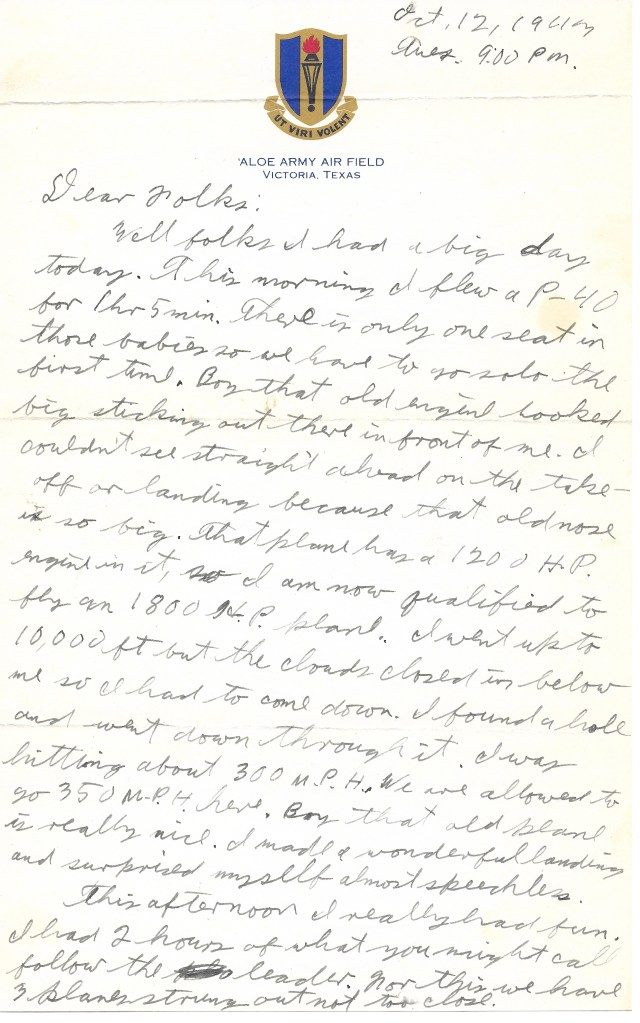 Oct. 12, 1943
Tues. 9:00 P.M.
UT VIRI VOLENT
ALOE ARMY AIR FIELD
VICTORIA, TEXAS
Dear Folks:
Well folks I had a big day
today. This morning I flew a P-40
for 1 hr 5 min. There is only one seat in
those babies so we have to go solo the
first time. Boy that old engine looked
big sticking out there in front of me. I
couldn't see straight ahead on the take-
off or landing because that old nose
is so big. That plane has a 1200 H.P.
engine in it, so I am now qualified to
fly an 1800 H.P. plane. I went up to
10,000 ft but the clouds closed in below
me so I had to come down. I found a hole
and went down through it. I was
hitting about 300 M.P.H. We are allowed to
go 350 M.P.H. here. Boy that old plane
is really nice. I made a wonderful landing
and surprised myself almost speechless.
This afternoon I really had fun.
I had 2 hours of what you might call
follow the leader. For this we have
3 planes strung out not too close.